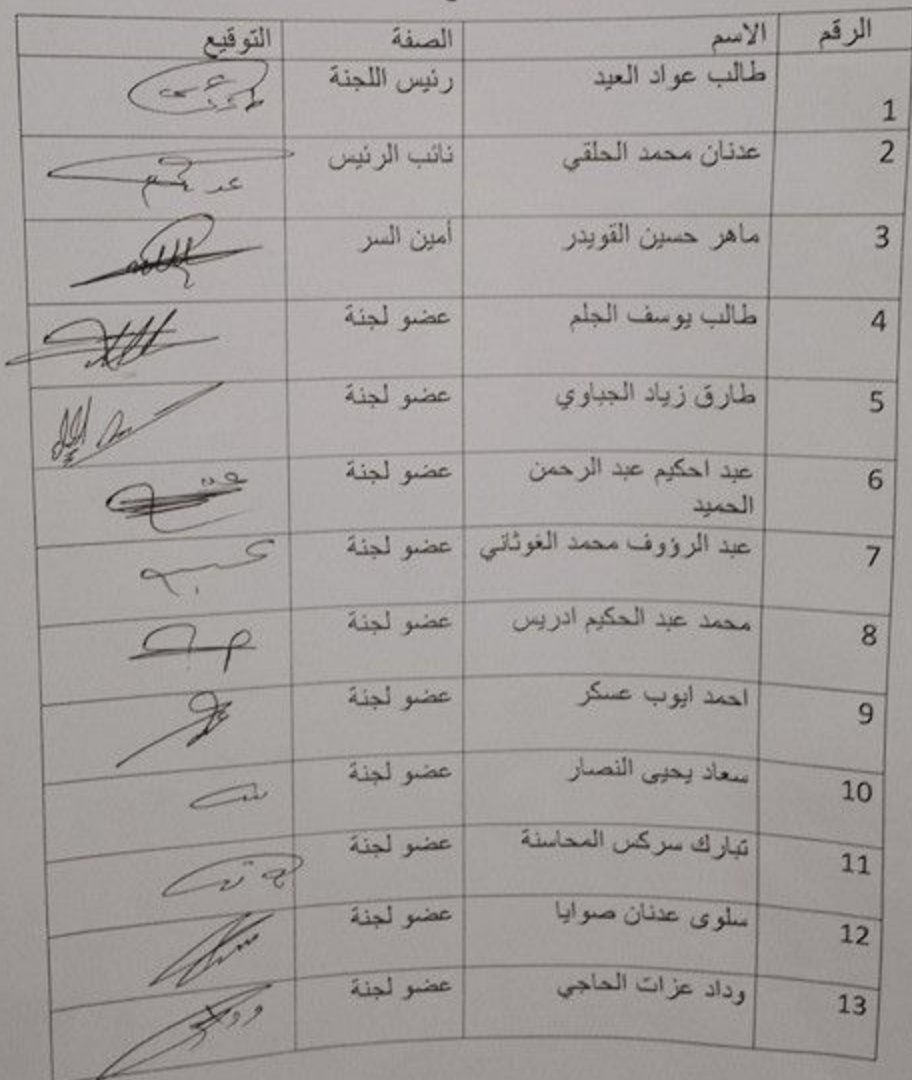 الرقم الاسم الصفة التوقيع
1 طالب عواد العيد رئيس اللجنة
2 عدنان محمد الحلقي نائب الرئيس
3 ماهر حسين القويدر أمين السر
4 طالب يوسف الجلم عضو لجنة
5 طارق زياد الجباوي عضو لجنة
6 عبد احكيم عبد الرحمن عضو لجنة
الحميد
7 عبد الرؤوف محمد الغوثاني عضو لجنة
8 محمد عبد الحكيم ادريس عضو لجنة
9 احمد ايوب عسكر عضو لجنة
10 سعاد يحيى النصار عضو لجنة
11 تبارك سركس المحاسنة عضو لجنة
12 سلوى عدنان صوايا عضو لجنة
13 وداد عزات الحاجي عضو لجنة